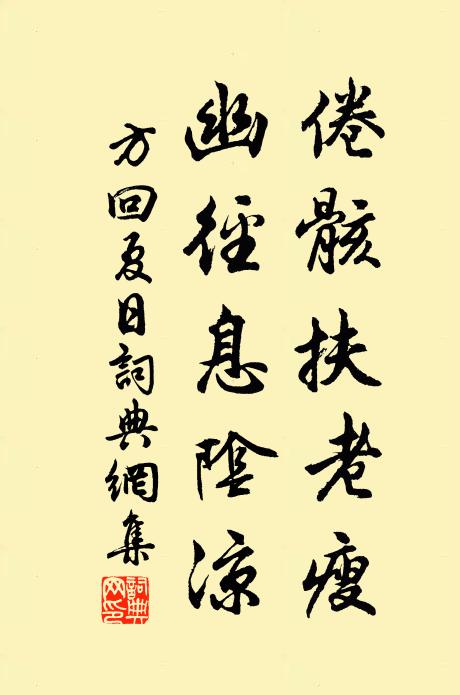 倦骸扶老瘦
幽徑息陰涼
方回夏日詞典網集
詞典網印